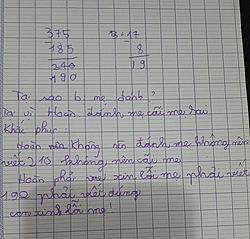 375
185
240
190
3.17
8
19
Tại sao bị mẹ đánh?
Tại vì Hoàn đánh mẹ cãi mẹ sai
Khắc phục
Hoàn nên không nên đánh mẹ không nên
viết 210 không nên cãi mẹ
Hoàn phải mẹ xin lỗi mẹ phải viết
190 phải viết đúng
con xin lỗi mẹ!